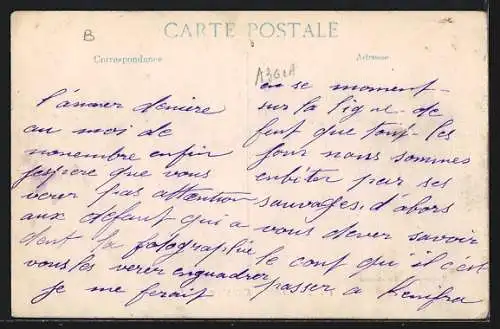 B
CARTE POSTALE
Correspondance
Adresse
l'anner deniere
au moi de
novembre enfin
jespere que vous
verer pas attention
aux defaut qui a
dent la fotographie
vous les verer enquadrer
je me ferait
en se moment
sur la ligne de
feut que tout les
jour nous sommes
enbiter par ses
sauvages, d'abors
vous dever savoir
le cout qu'il c'est
passer a Kenifra